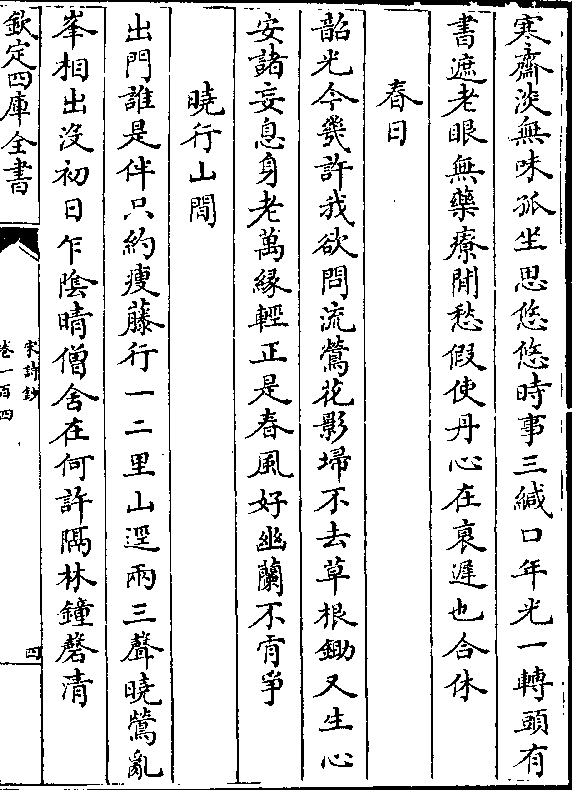 寒齋淡無味孤坐思悠悠時事三緘口年光一轉頭有
書遮老眼無藥療閒愁假使丹心在衰遲也合休
春日
韶光今幾許我欲問流鶯花影埽不去草根鋤又生心
安諸妄息身老萬緣輕正是春風好幽蘭不肎爭
曉行山間
出門誰是伴只約瘦藤行一二里山逕兩三聲曉鶯亂
峯相出沒初日乍陰晴僧舍在何許隔林鐘磬清
欽定四庫全書
宋詩鈔
卷一百四
四